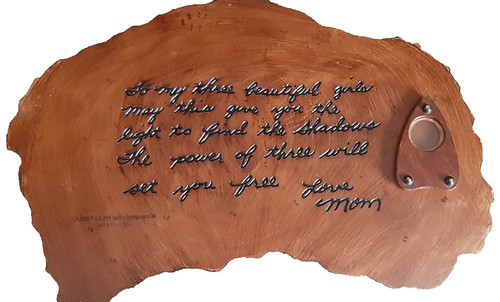 To my three beautiful girls
may this give you the
light to find the shadows
the power of three will
set you free Love
Mom